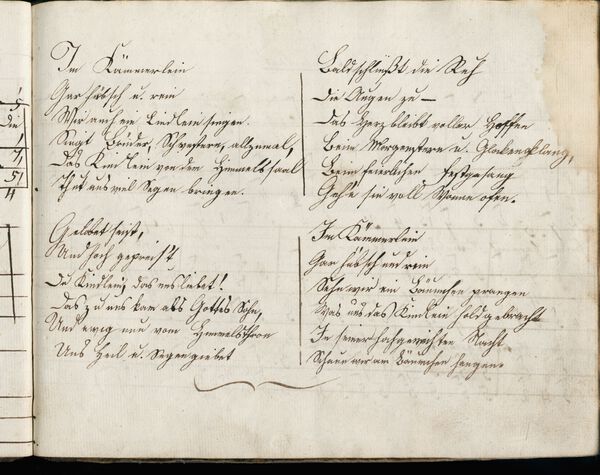 Im Kämmerlein
Gar hübsch u. rein
Wir auch ein Liedlein singen.
Singt Brüder, Schwestern, allzumal,
Das Kindlein von dem Himmelssaal
Thut uns viel Segen bringen.
Gelobet seist,
Und hoch gepreis't
Du Kindlein, das uns liebet!
Das zu uns kam als Gottes Sohn,
Und ewig nun vom Himmelsthron
Uns Heil u. Segen giebet
Bald schließt die Ruh
Die Augen zu —
Das Herz bleibt voller Hoffen
Beim Morgenstern u. Glockenklang,
Beim feierlichen Festgesang
Geh'n sie voll Wonne ofen.
Im Kämmerlein
Gar hübsch und rein
Sehn wir ein Bäumchen prangen
Was uns das Kindlein hold gebracht
In seiner hochgeweihten Nacht
Schaun wir am Bäumchen hangen.
5
die
51
4